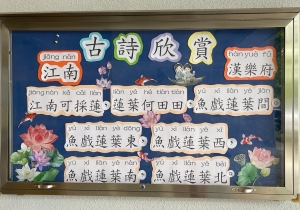 古詩欣賞
jiāng nán
江南
hàn yuè fǔ
漢樂府
jiāng nán kě cǎi lián
江南可採蓮，
lián yè hé tián tián
蓮葉何田田。
yú xì lián yè jiān
魚戲蓮葉間。
yú xì lián yè dōng
魚戲蓮葉東，
yú xì lián yè xī
魚戲蓮葉西，
yú xì lián yè nán
魚戲蓮葉南，
yú xì lián yè běi
魚戲蓮葉北。